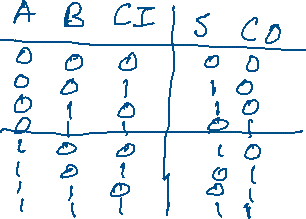 A B CI S CO
0 0 0 0 0
0 0 1 1 0
0 1 0 1 0
0 1 1 0 1
1 0 0 1 0
1 0 1 0 1
1 1 0 0 1
1 1 1 1 1